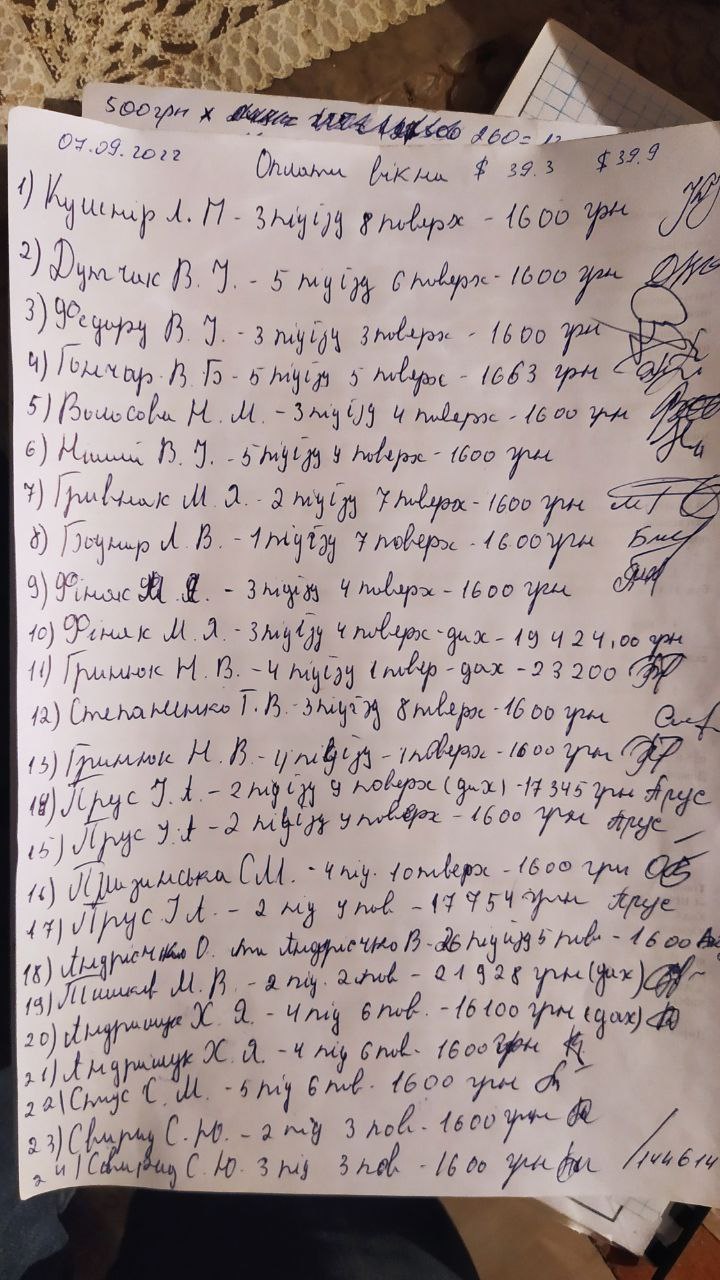 500грн х 260=
07.09.2022 Оплати вікна $ 39.3 $ 39.9
1) Кушнір Л. П - 3 підїзд 8 поверх - 1600 грн
2) Дутчак В. І. - 5 підїзд 6 поверх - 1600 грн
3) Федорч В. І. - 3 підїзд 3 поверх - 1600 грн
4) Гончар В. Б - 5 підїзд 5 поверх - 1663 грн
5) Волосова Н. М. - 3 підїзд 4 поверх - 1600 грн
6) В. І. - 5 підїзд 4 поверх - 1600 грн
7) Гривнак М. Я. - 2 підїзд 7 поверх - 1600 грн
8) Боднар Л. В. - 1 підїзд 7 поверх - 1600 грн
9) Фіняк М. Я. - 3 підїзд 4 поверх - 1600 грн
10) Фіняк М. Я. - 3 підїзд 4 поверх - дах - 19 424,00 грн
11) Гринюк Н. В. - 4 підїзд 1 повер - дах - 23200
12) Степаненко Г. В. - 3 підїзд 8 поверх - 1600 грн
13) Гринюк Н. В. - 4 підїзд - 1 поверх - 1600 грн
14) Прус І. А. - 2 підїзд 4 поверх (дах) - 17345 грн Прус
15) Прус І. А - 2 підїзд 4 поверх - 1600 грн Прус
16) С.М. - 4 під. 10 поверх - 1600 грн
17) Прус І. А. - 2 під 4 пов - 17754 грн Прус
18) О. та В - підїзд 5 пов - 1600
19) М. В. - 2 під. 2 пов - 21928 грн (дах)
20) Андрищук Х. Я. - 4 під 6 пов. - 16100 грн (дах)
21) Андрищук Х. Я. - 4 під 6 пов - 1600 грн
22) Стус С. М. - 5 під 6 пов. - 1600 грн
23) Свирид С. Ю. - 2 під 3 пов. - 1600 грн
24) Свирид С. Ю. 3 під 3 пов - 1600 грн /144614